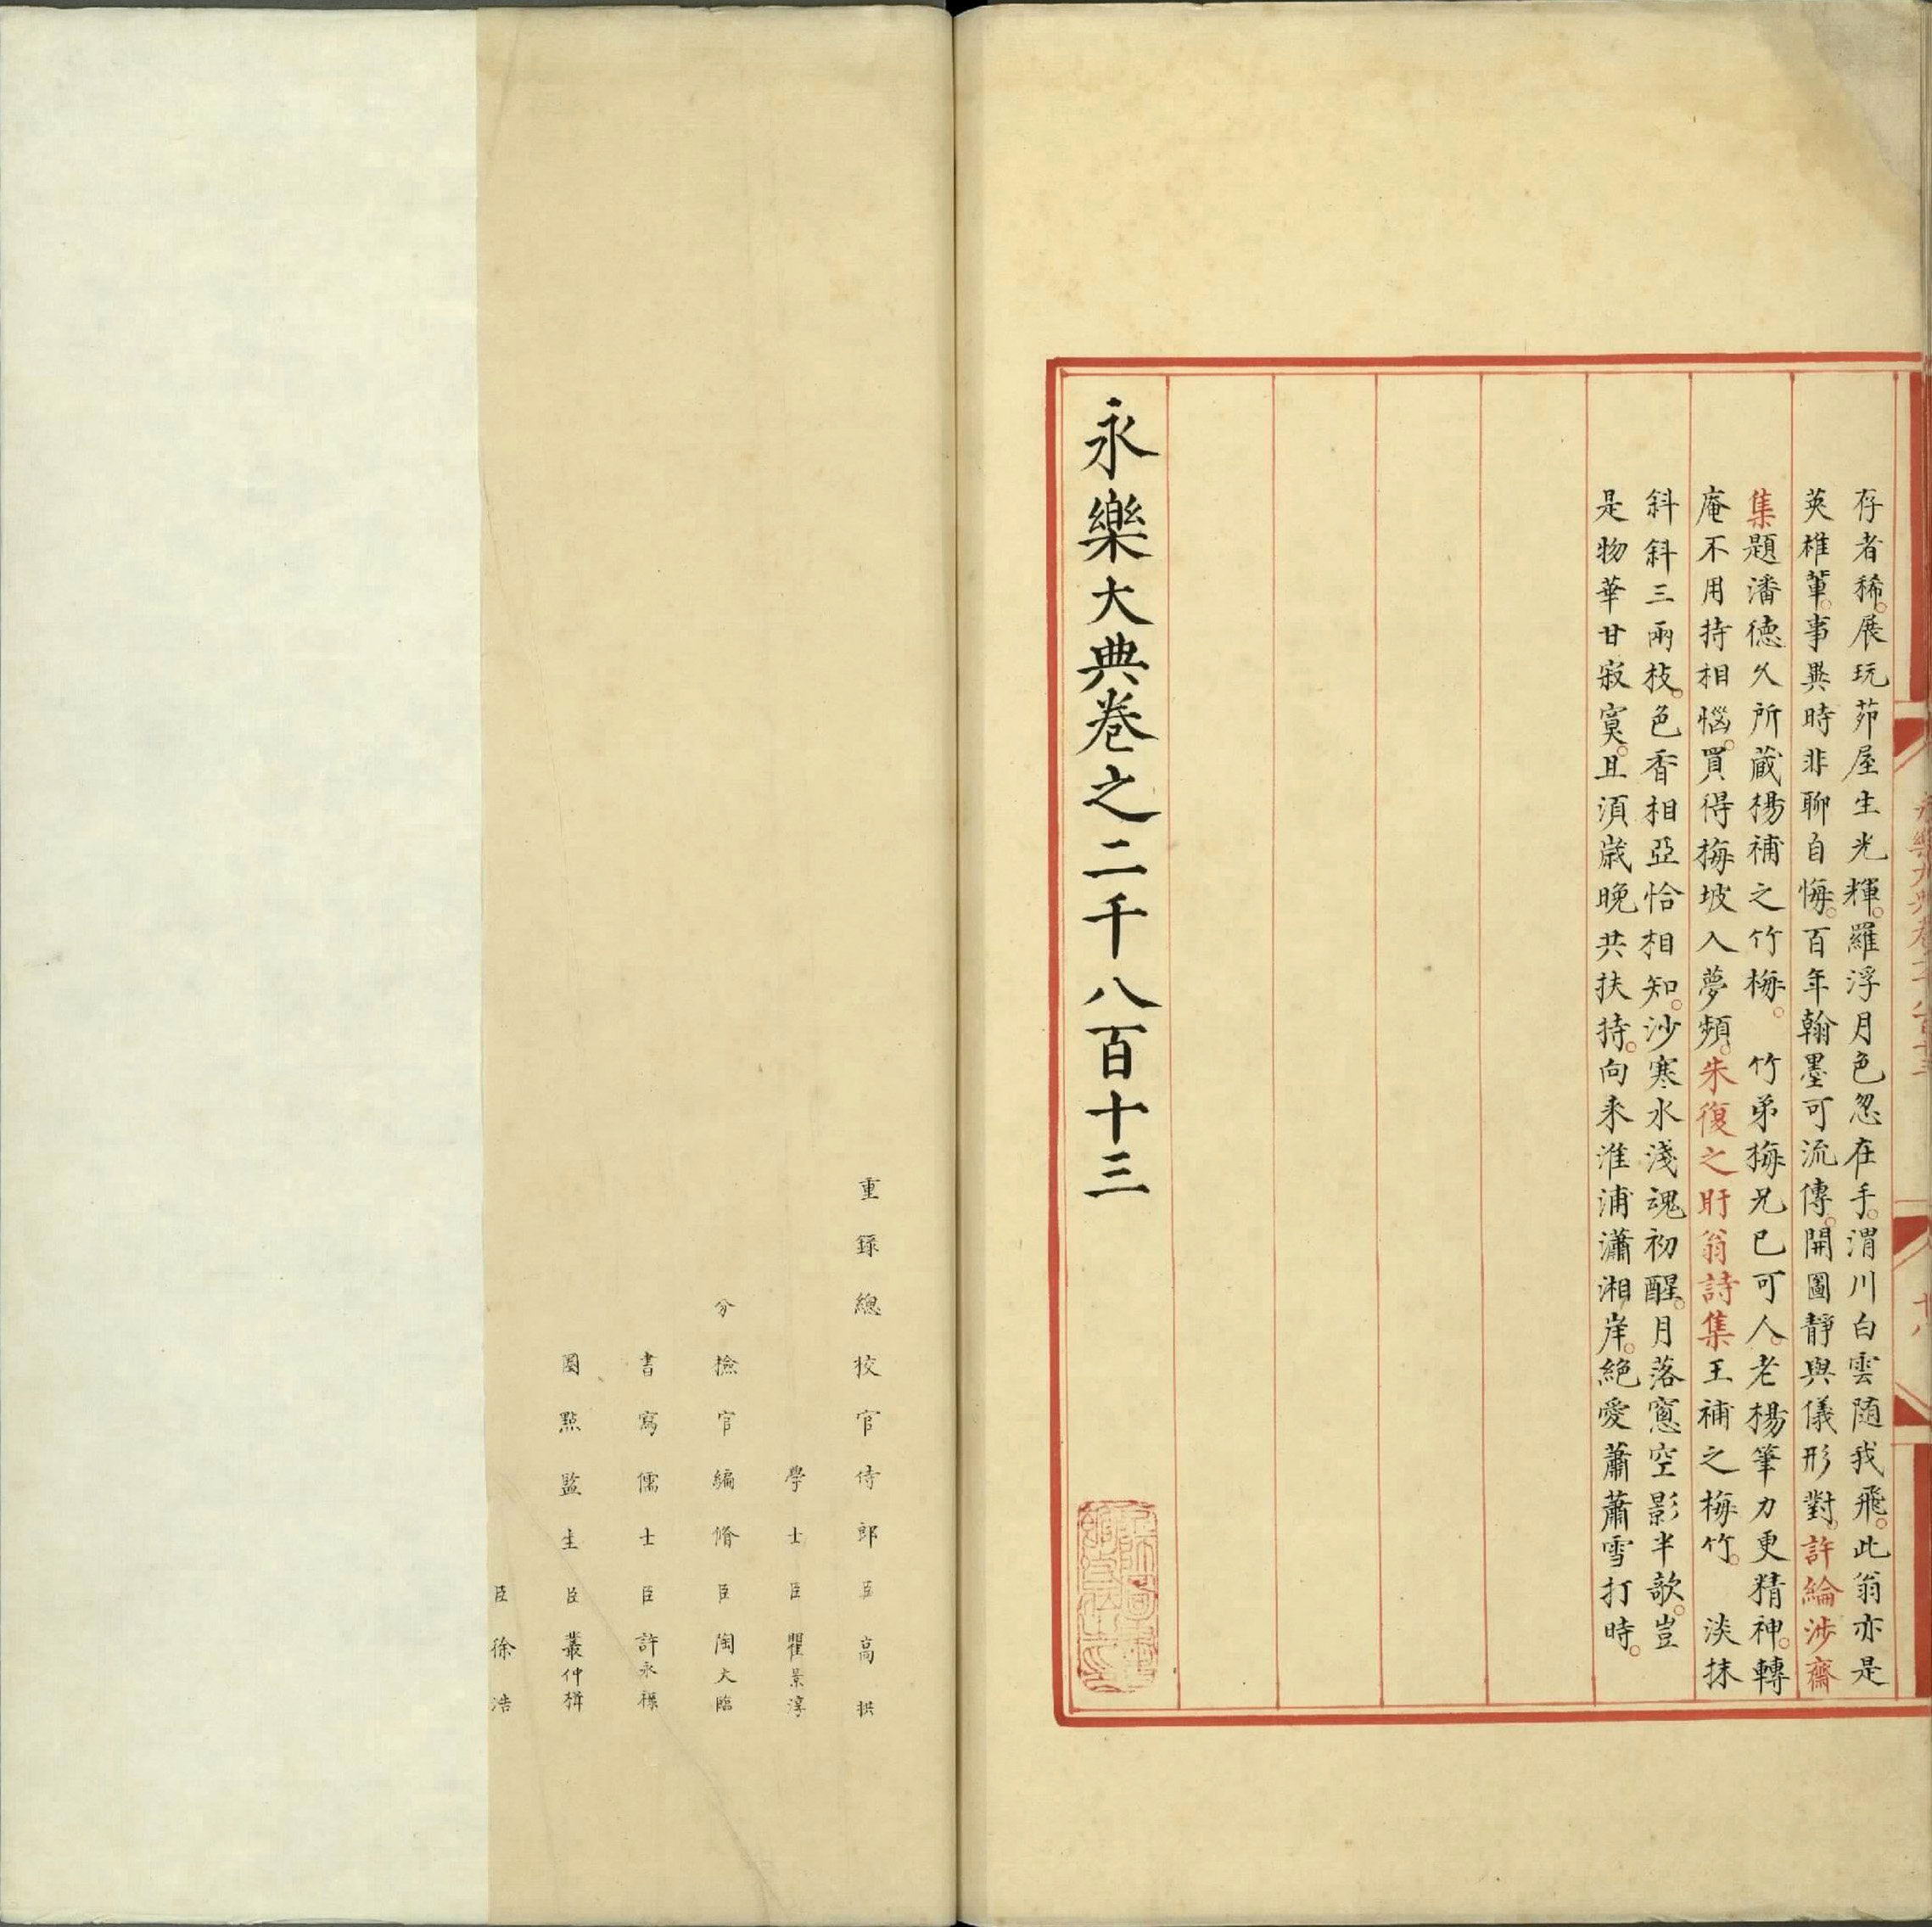 永樂大典卷二千八百十三
十八
存者稀展玩茆屋生光輝羅浮月色忽在手渭川白雲随我飛此翁亦是
英雄軰事異時非聊自悔百年翰墨可流傳開圖靜與儀形對許綸涉齋
集題潘德久所藏楊補之竹梅 竹弟梅兄已可人老楊筆力更精神轉
庵不用持相惱買得梅坡入夢頻朱復之盱翁詩集王補之梅竹 淡抹
斜斜三兩枝色香相亞恰相知沙寒水淺魂初醒月落窻空影半欹豈
是物華甘寂寞且須歲晚共扶持向来淮浦瀟湘岸絶愛蕭蕭雪打時
永樂大典卷之二千八百十三
重録總校官侍郎臣高拱
學士臣瞿景淳
分校官編脩臣陶大臨
書寫儒士臣許永禄
圈點監生臣叢仲楫
臣徐浩